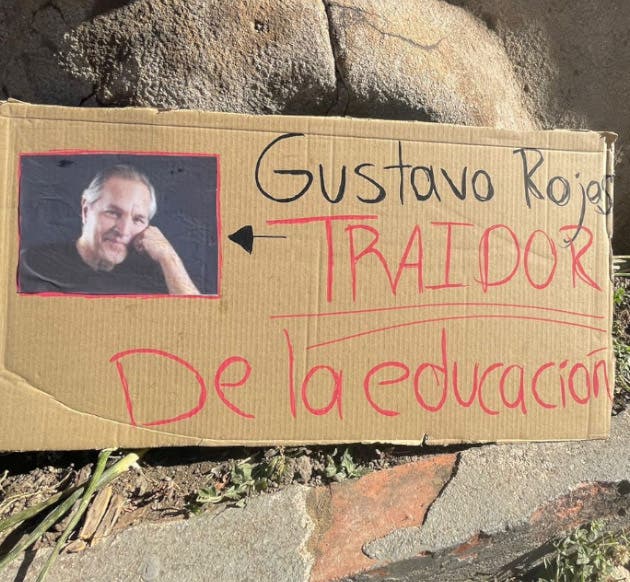 Gustavo Rojas
TRAIDOR
De la educación